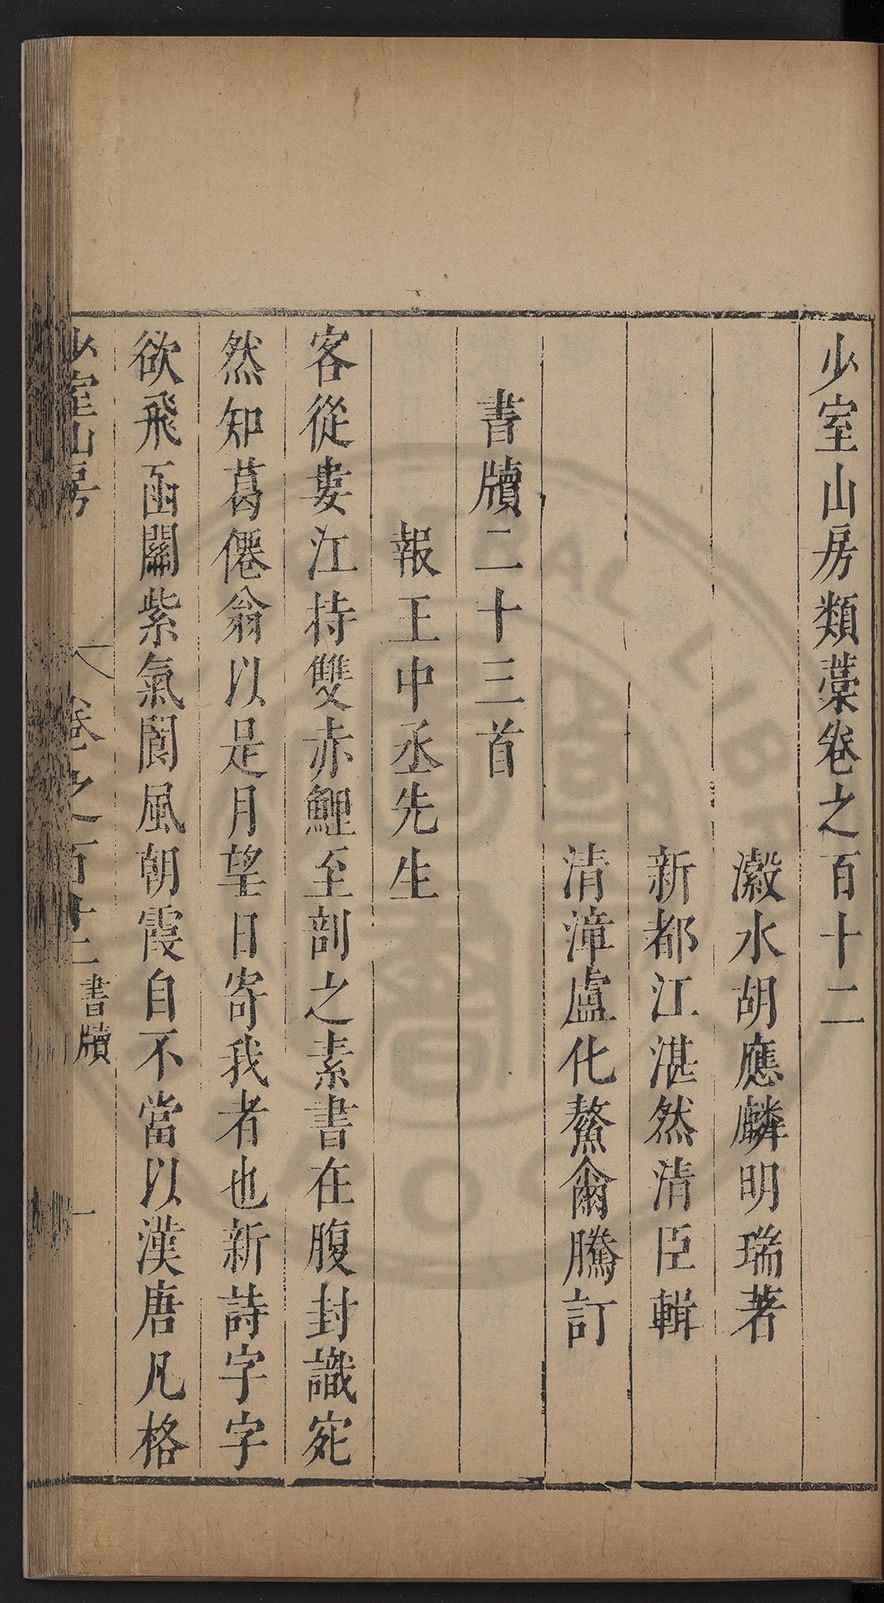 少室山房類藁卷之百十二
瀫水胡應麟明瑞著
新都江湛然清臣輯
清漳盧化鰲爾騰訂
書牘二十三首
報王中丞先生
客從婁江持雙赤鯉至剖之素書在腹封識宛
然知葛僊翁以是月望日寄我者也新詩字字
欲飛函關紫氣閬風朝霞自不當以漢唐凡格
少室山房
卷之百十二
書牘
一